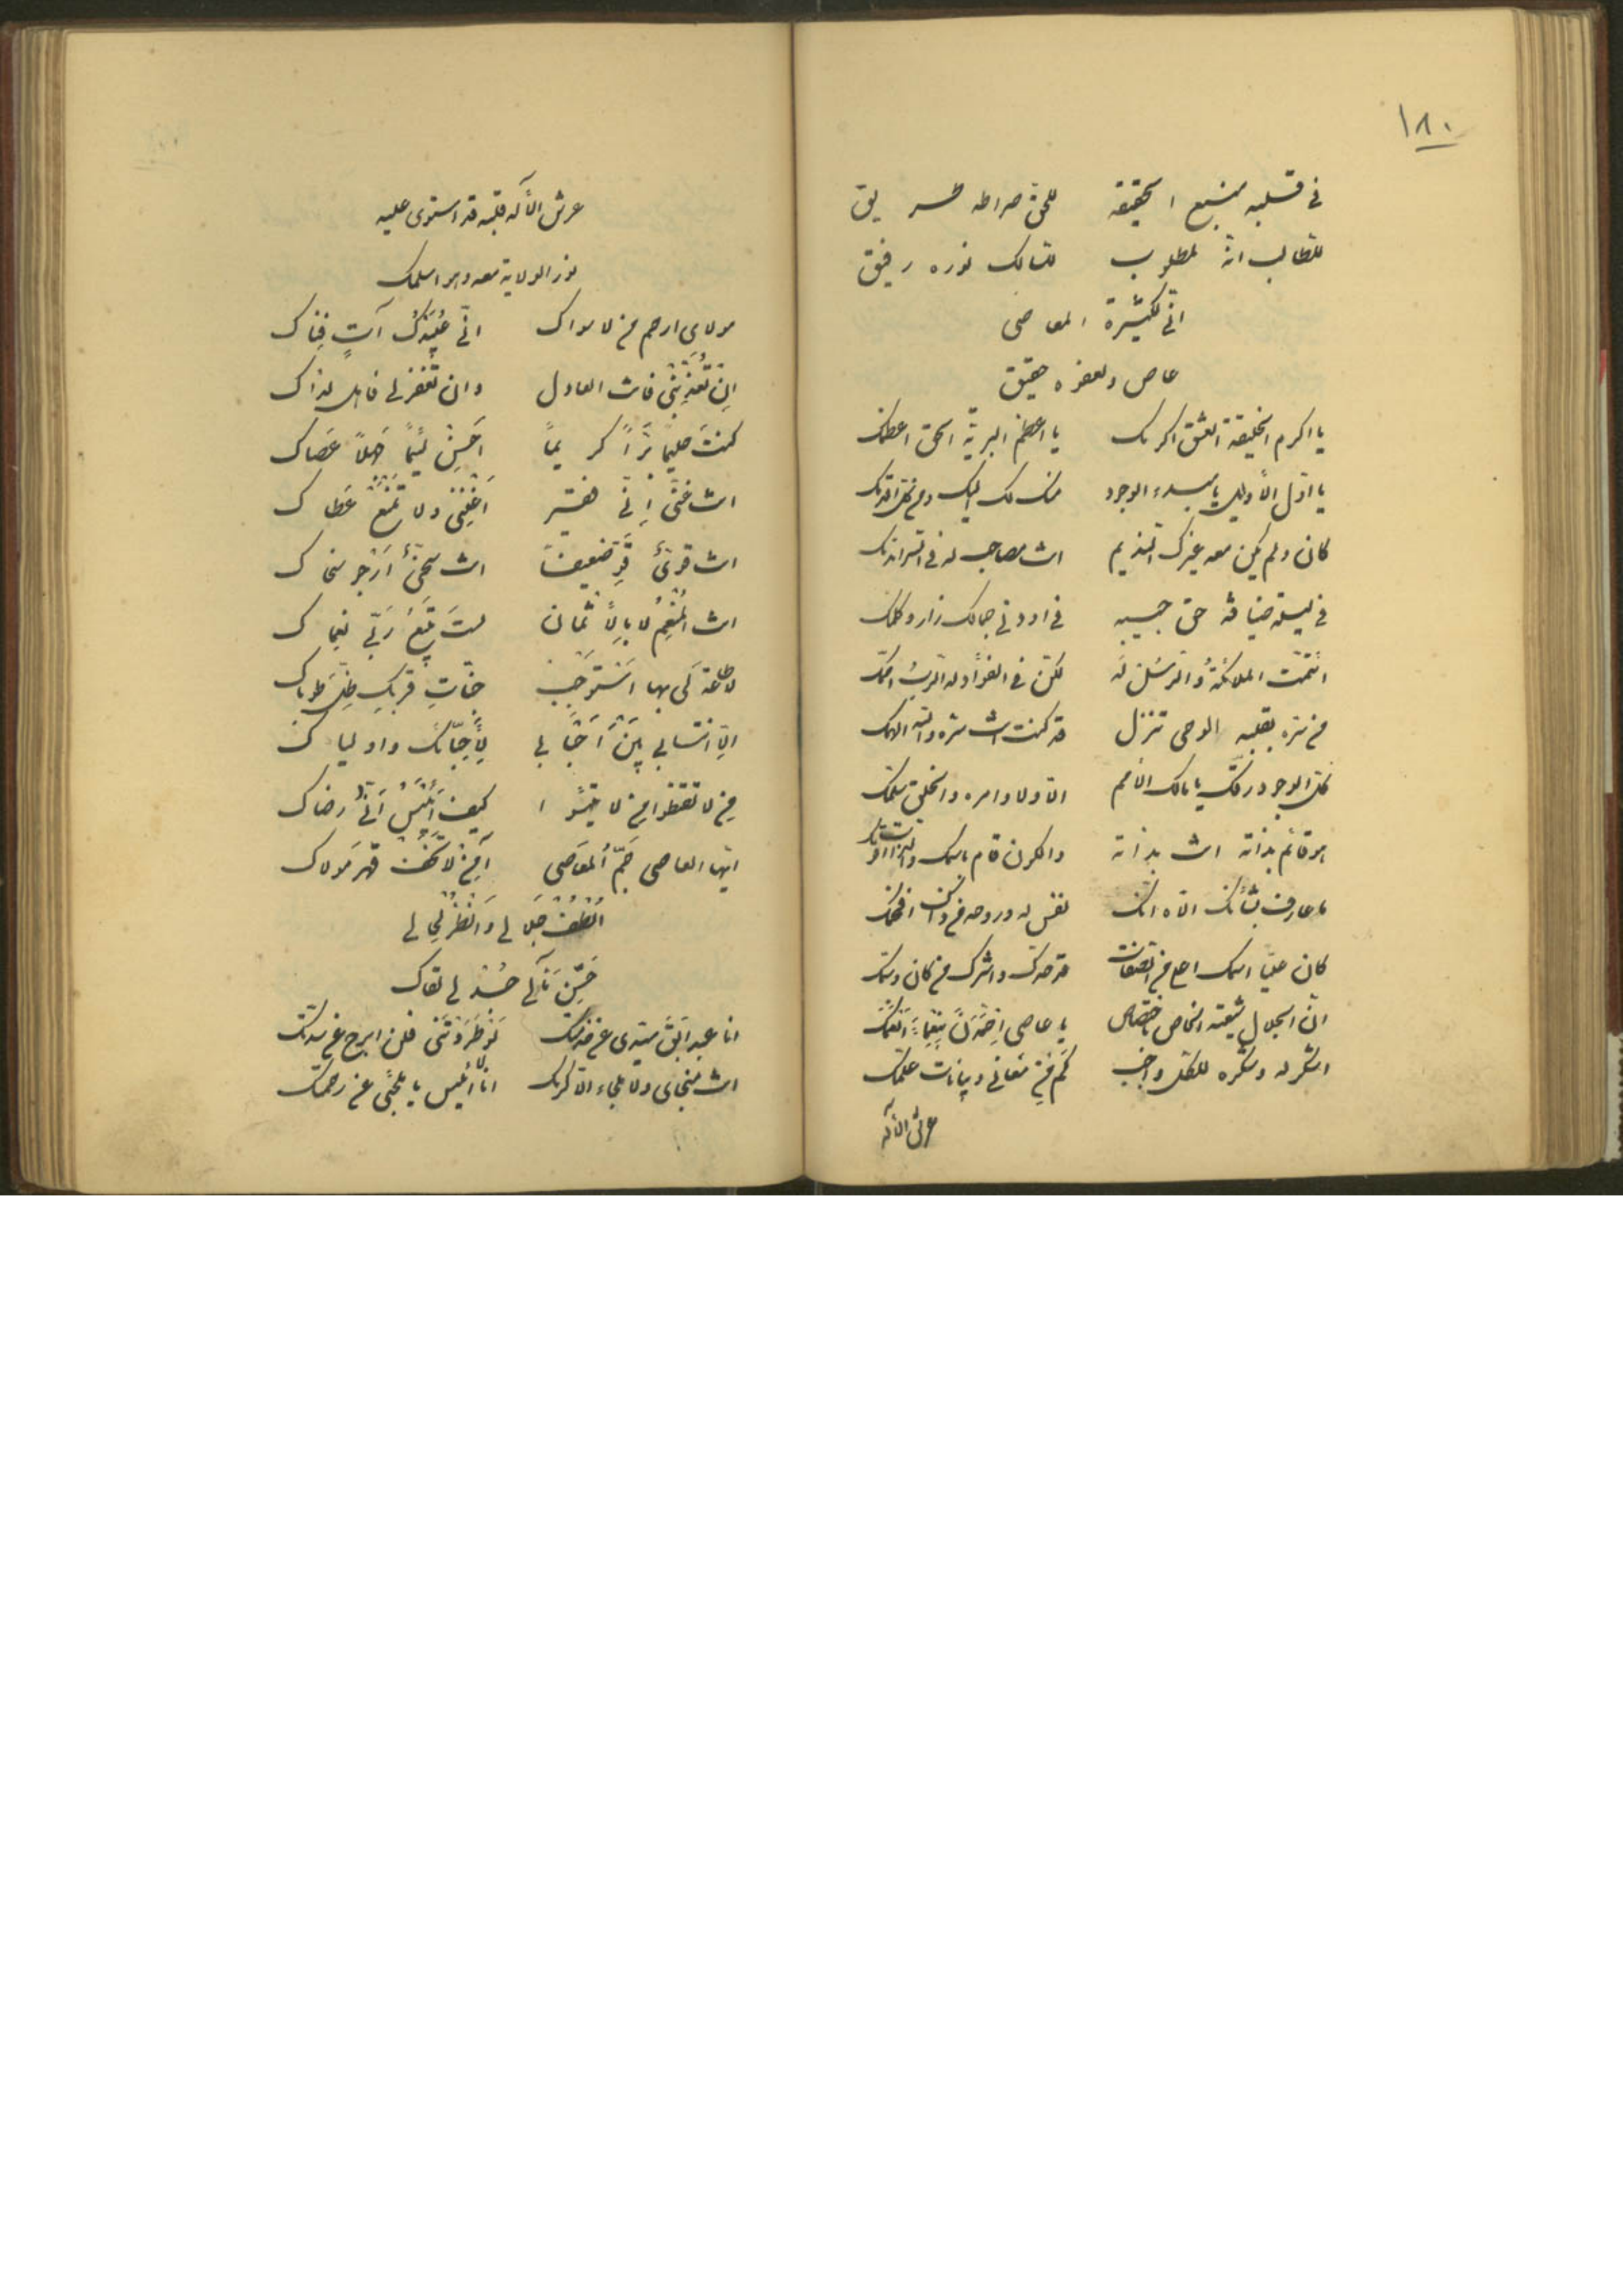 ١٨٠
في قلبه منبع الحقيقة للحق صراطه طريق
للطالب انه لمطلوب للسالك نوره رفيق
اني لكثيرة المعاصي
عاص ولعفوه حقيق
يا اكرم الخليقة العشق اكرمك يا اعظم البرية الحق اعظمك
يا اول الأوايل يا مبدء الوجود
كان ولم يكن معه غيرك النديم انت مصاحب له في السر
في ليلة ضيافة حق حبيبه
ائتمت الملائكة والرسل له لكن في الفؤاد له الرب
من سره بقلبه الوحي تنزل قد كنت انت سره والله الهمك
كل الوجود رقك يا مالك الأمم الا ولا وامره والخلق سلمك
هو قائم بذاته انت بذاته والكون قام باسمك
ما عارف بشأنك الا ه انك نفس له وروحه
كان عليا اسمك اعلى من الصفات قد وحدك واشرك من كان
ان الجلال شيعته الخاص باختصاص يا عاصي
اشكر له وشكره للكل واجب كم من معاني وبيانات علمك
عرش الأله
عرش الأله قلبه قد استوى عليه
نور الولاية معه وهو اسلمك
مولاي ارحم من لا سواك اني عبيدك آت فناك
ان تعذبني فانت العادل وان تغفر لي فاهل لذاك
كنت حليما برا كريما احسن لئيما جهلا عصاك
انت غني اني فقير اغنني ولا تمنع عطاك
انت قوي قو ضعيفا انت سخي ارجو سخاك
انت المنعم لا بالأثمان لست تمنع ربي نعماك
لا طاعة لي بها استوجب جنات قربك ظل طوباك
الا انتسابي بين احبابي لأحبائك واوليائك
من لا تقنطوا من لا تيئسوا كيف أيئس اني رضاك
ايها العاصي جم المعاصي آمن لا تخف قهر مولاك
الطف جلالي وانظر لي
حسن مآلي خذ لقاك
انا عبد ابق سيدي عن خدمتك لو طردتني فلن ابرح عن سدتك
انت منجاي ولا ملجاء الا كرمك انا لا أيئس يا ملجئي عن رحمتك